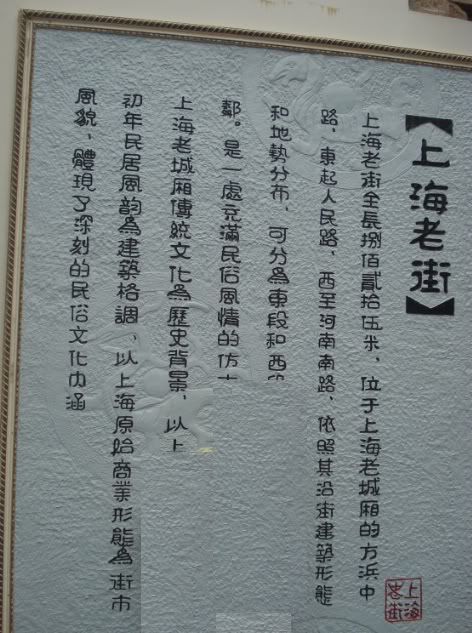 【上海老街】
上海老街全長捌佰貳拾伍米，位于上海老城厢的方浜中
路，東起人民路，西至河南南路，依照其沿街建築形態
和地勢分布，可分為東段和西
。是一處充滿民俗風情的仿
上海老城厢傳統文化為歷史背景，以上
初年民居風韵為建築格調，以上海原始商業形態為街市
風貌，體現了深刻的民俗文化内涵
上海老街